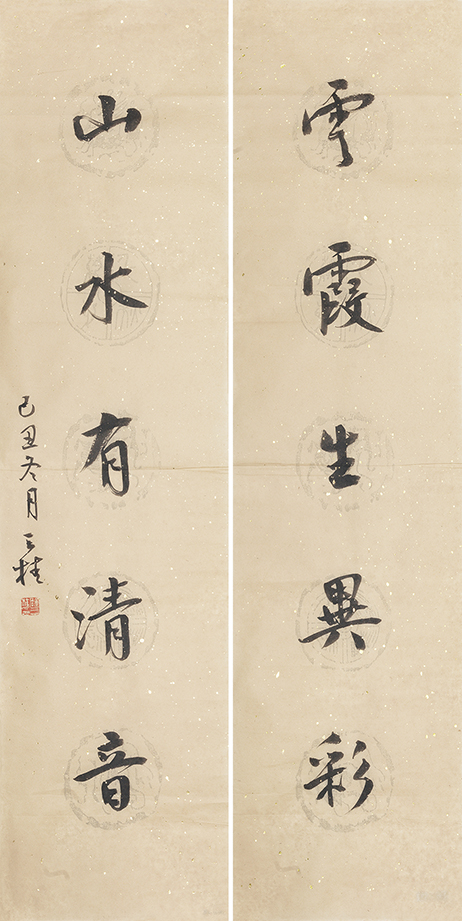 雲霞生異彩
山水有清音
己丑冬月 三桂